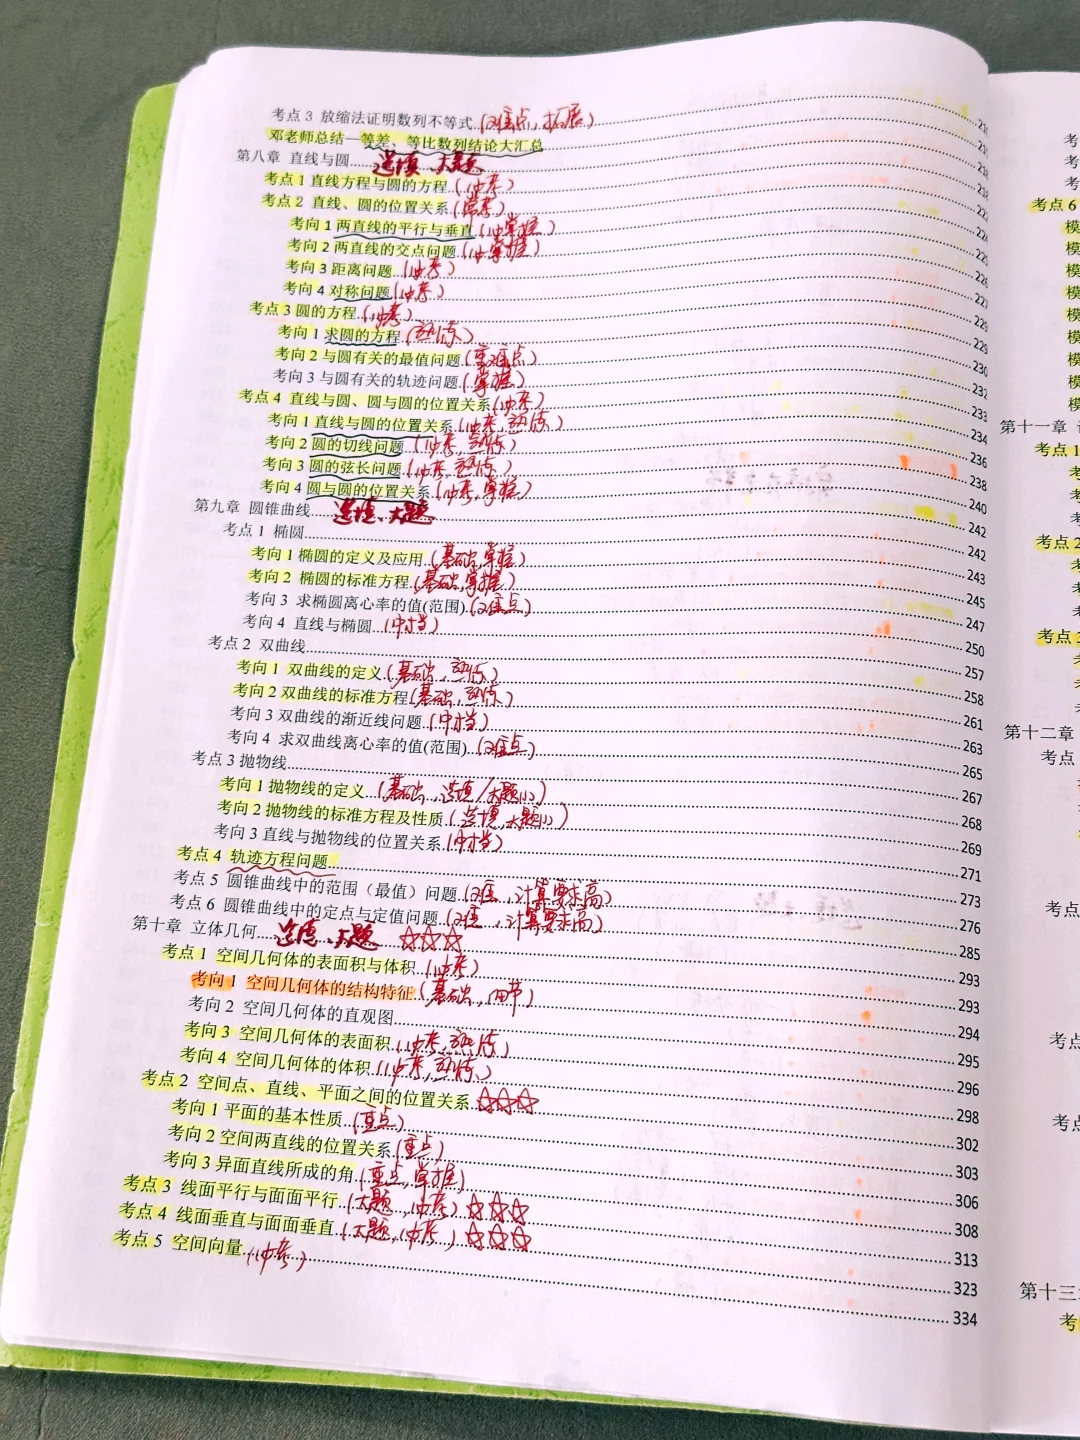 考点 3 放缩法证明数列不等式 (难点，拓展)
邓老师总结—等差、等比数列结论大汇总
第八章 直线与圆 选填、大题
考点 1 直线方程与圆的方程 (必考)
考点 2 直线、圆的位置关系 (常考)
考向 1 两直线的平行与垂直 (必掌握)
考向 2 两直线的交点问题 (必掌握)
考向 3 距离问题 (必考)
考向 4 对称问题 (必考)
考点 3 圆的方程 (必考)
考向 1 求圆的方程 (熟练)
考向 2 与圆有关的最值问题 (重难点) 230
考向 3 与圆有关的轨迹问题 (掌握) 232
考点 4 直线与圆、圆与圆的位置关系 (必考) 233
考向 1 直线与圆的位置关系 (必考,熟练) 234
考向 2 圆的切线问题 (必考,熟练) 236
考向 3 圆的弦长问题 (必考,熟练) 238
考向 4 圆与圆的位置关系 (必考,掌握) 240
第九章 圆锥曲线 选填、大题 242
考点 1 椭圆 242
考向 1 椭圆的定义及应用 (基础,掌握) 243
考向 2 椭圆的标准方程 (基础,掌握) 245
考向 3 求椭圆离心率的值(范围) (难点) 247
考向 4 直线与椭圆 (中档) 250
考点 2 双曲线 257
考向 1 双曲线的定义 (基础,熟练) 258
考向 2 双曲线的标准方程 (基础,熟练) 261
考向 3 双曲线的渐近线问题 (中档) 263
考向 4 求双曲线离心率的值(范围) (难点) 265
考点 3 抛物线 267
考向 1 抛物线的定义 (基础,选填/大题(1)) 268
考向 2 抛物线的标准方程及性质 (选填,大题(1)) 269
考向 3 直线与抛物线的位置关系 (中档) 271
考点 4 轨迹方程问题 273
考点 5 圆锥曲线中的范围（最值）问题 (难,计算要求高) 276
考点 6 圆锥曲线中的定点与定值问题 (难,计算要求高) 285
第十章 立体几何 选填、大题 ☆☆☆ 293
考点 1 空间几何体的表面积与体积 (必考) 293
考向 1 空间几何体的结构特征 (基础,细节) 294
考向 2 空间几何体的直观图 295
考向 3 空间几何体的表面积 (必考,熟练) 296
考向 4 空间几何体的体积 (必考,熟练) 298
考点 2 空间点、直线、平面之间的位置关系 ☆☆☆ 302
考向 1 平面的基本性质 (重点) 303
考向 2 空间两直线的位置关系 (重点) 306
考向 3 异面直线所成的角 (重点,掌握) 308
考点 3 线面平行与面面平行 (大题,必考) ☆☆☆ 313
考点 4 线面垂直与面面垂直 (大题,必考) ☆☆☆ 323
考点 5 空间向量 (必考) 334
考
考
考
考点 6
模
模
模
模
模
模
模
模
模
第十一章
考点 1
考点 2
考点 3
第十二章
考点
考点
考点
考点
第十三
考